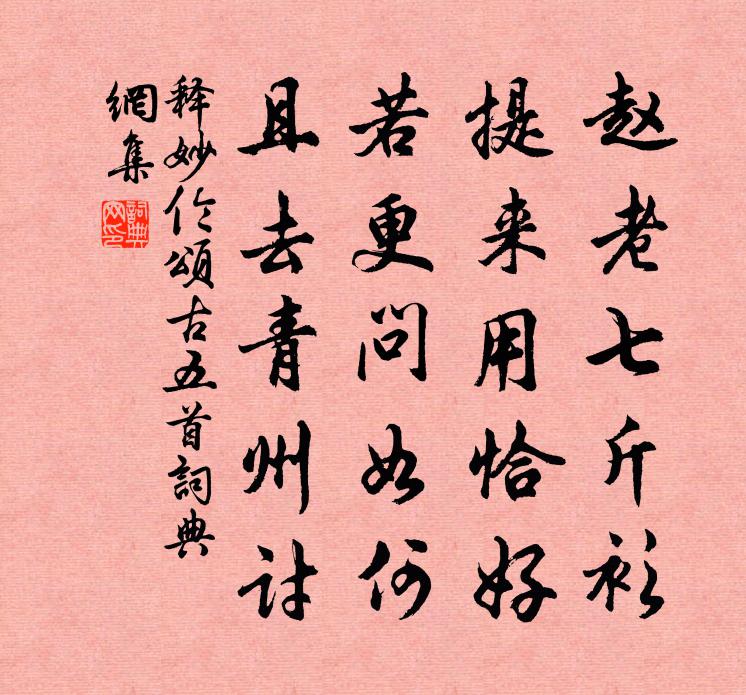 赵老七斤衫
提来用恰好
若更问如何
且去青州讨
释妙伦颂古五首詞典
網集
詞典
网印